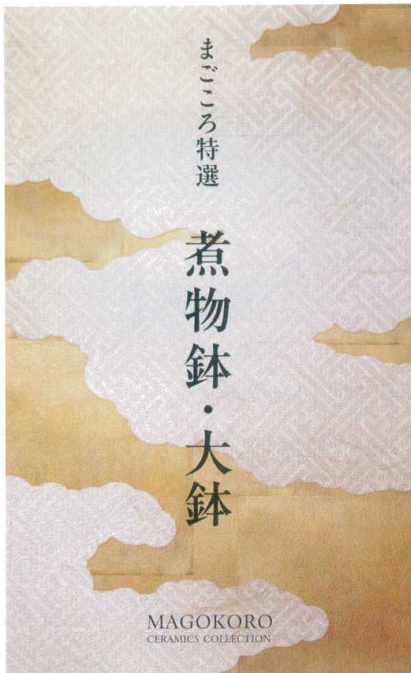 まごころ特選
煮物鉢・大鉢
MAGOKORO
CERAMICS COLLECTION